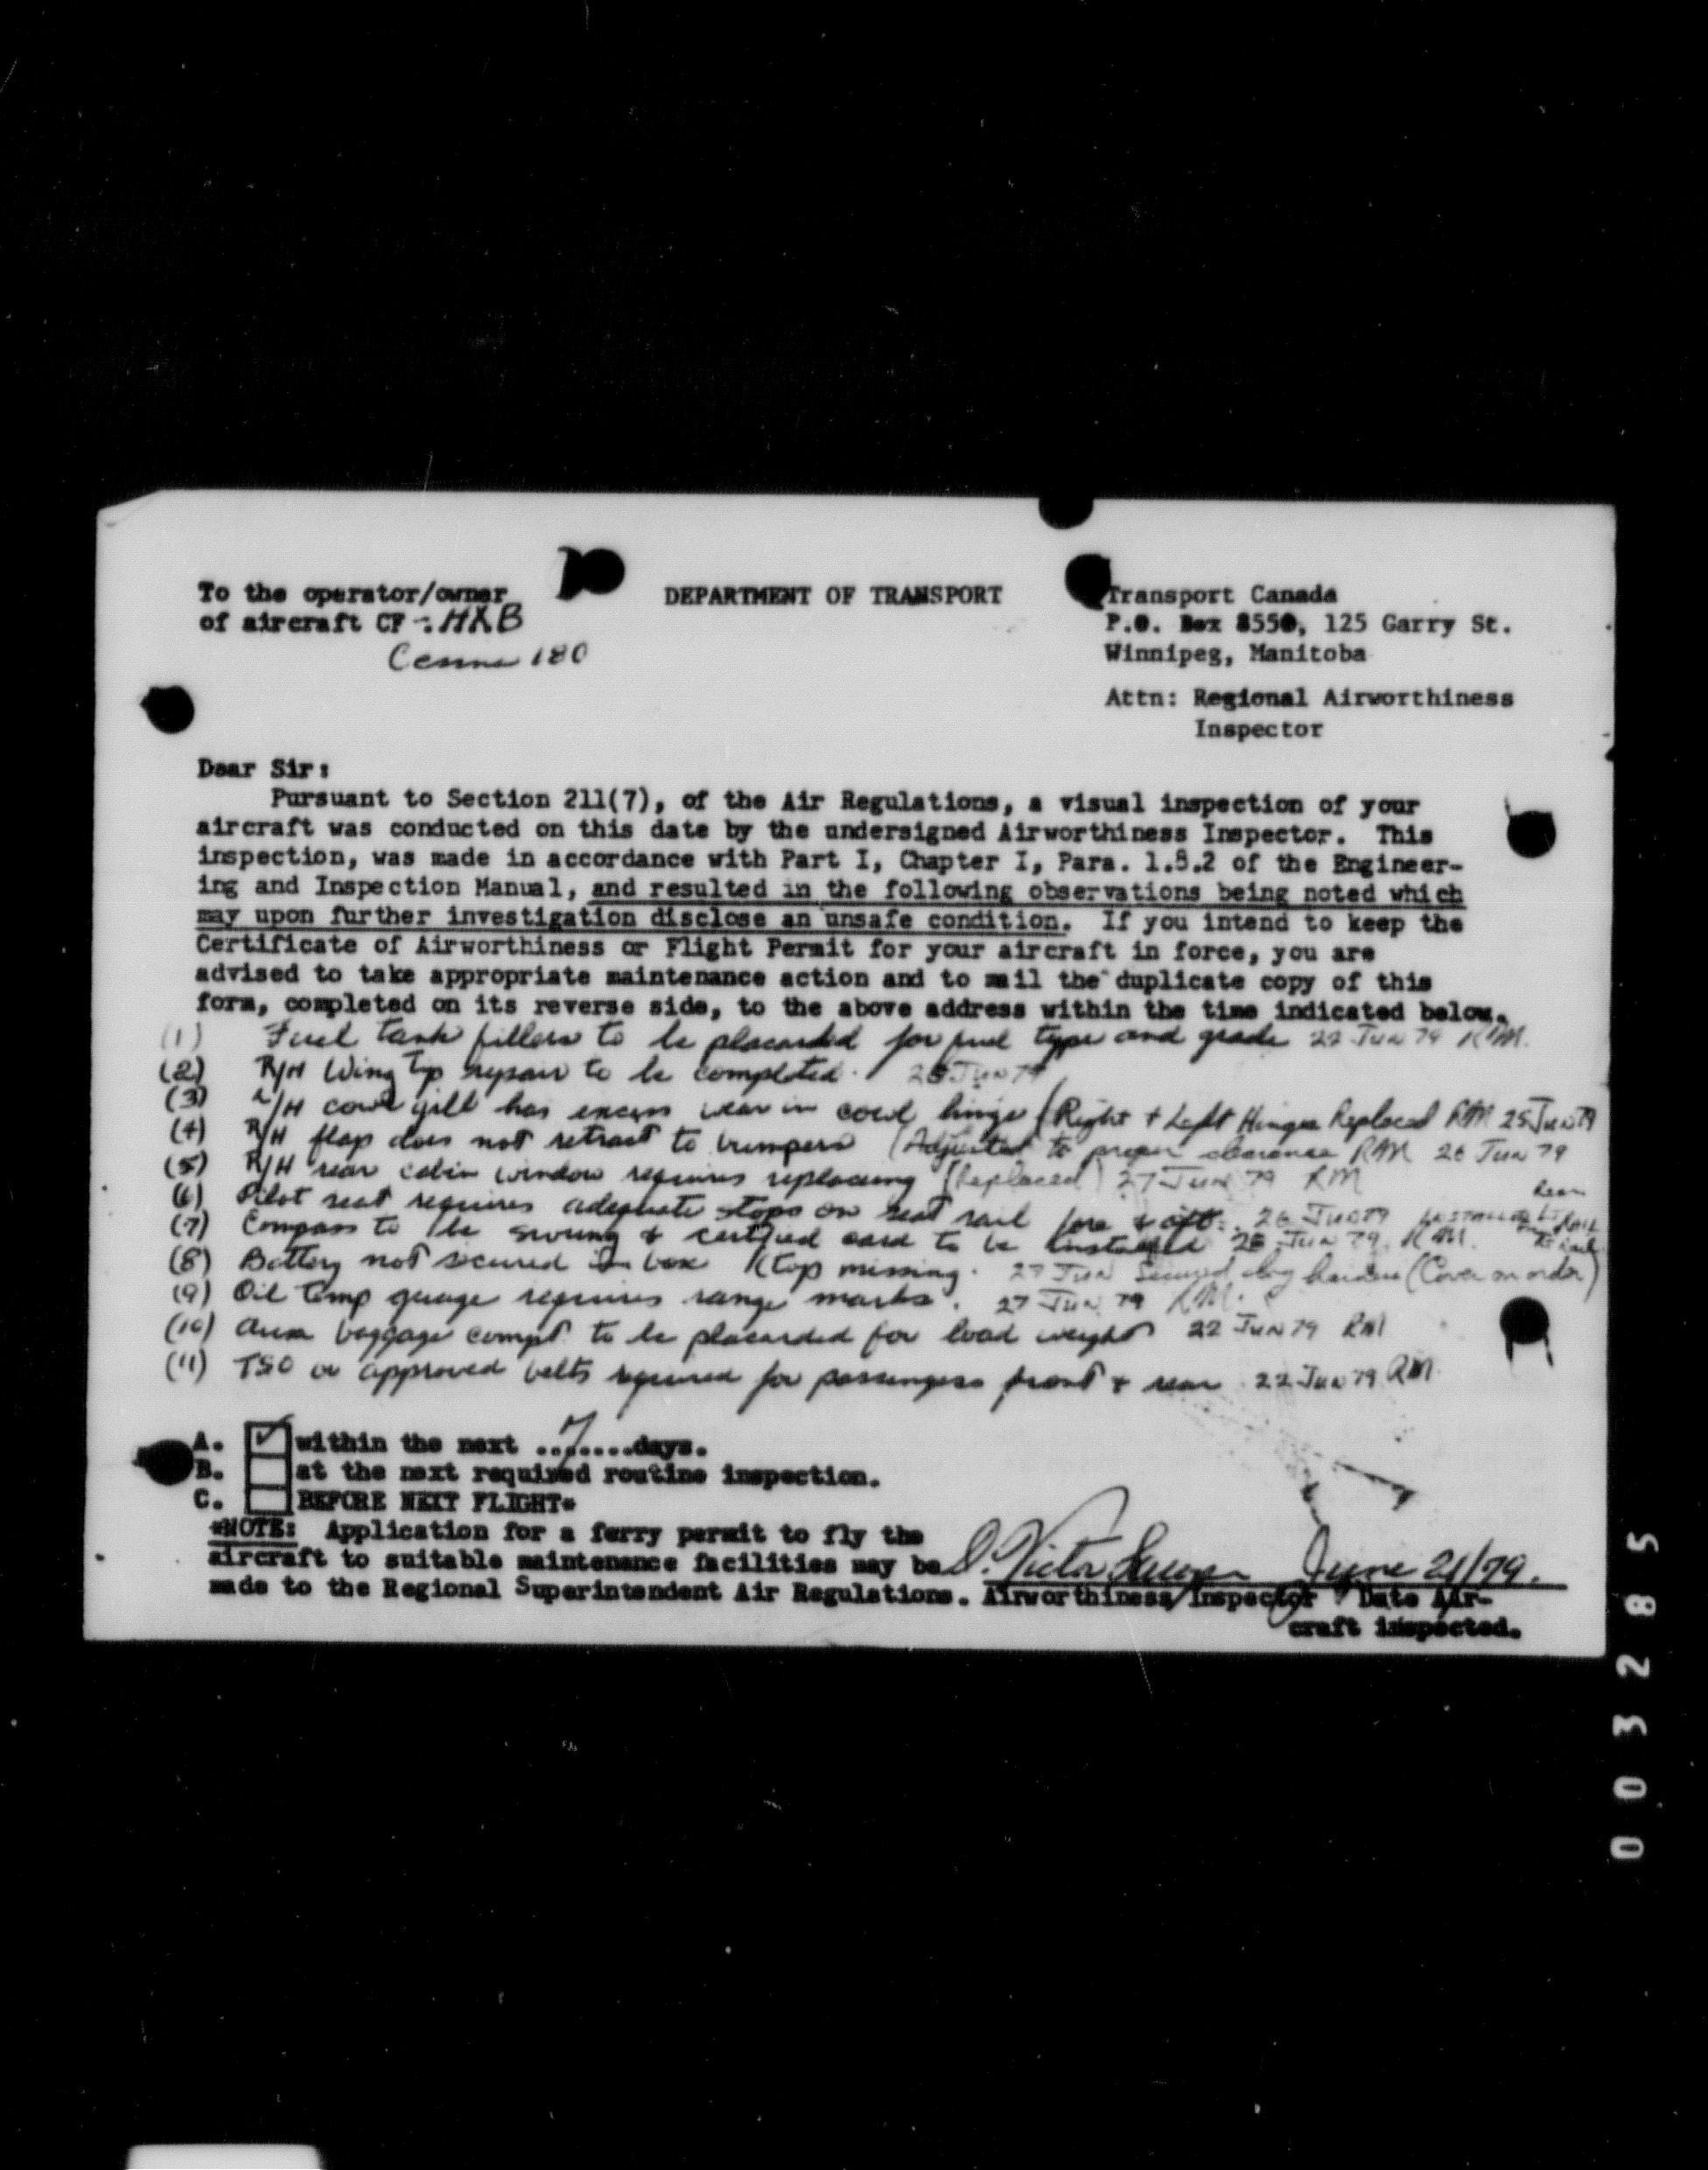 To the operator/owner
of aircraft CF-:HXB
Cessna 180
DEPARTMENT OF TRANSPORT
Transport Canada
P.O. Box 8550, 125 Garry St.
Winnipeg, Manitoba
Attn: Regional Airworthiness
Inspector
Dear Sir:
Pursuant to Section 211(7), of the Air Regulations, a visual inspection of your
aircraft was conducted on this date by the undersigned Airworthiness Inspector. This
inspection, was made in accordance with Part I, Chapter I, Para. 1.5.2 of the Engineer-
ing and Inspection Manual, and resulted in the following observations being noted which
may upon further investigation disclose an unsafe condition. If you intend to keep the
Certificate of Airworthiness or Flight Permit for your aircraft in force, you are
advised to take appropriate maintenance action and to mail the duplicate copy of this
form, completed on its reverse side, to the above address within the time indicated below.
(1) Fuel tank fillers to be placarded for fuel type and grade 22 Jun 79 RM.
(2) R/H Wing tip repair to be completed. Jun 79
(3) L/H cowl gill has excess wear in cowl hinge (Right + Left Hinges Replaced RM 25 Jun 79
(4) R/H flap does not retract to bumpers (Adjusted to proper clearance RM 26 Jun 79
(5) R/H rear cabin window requires replacing (Replaced) 27 Jun 79 RM
(6) Pilot seat requires adequate stops on seat rail fore & aft. 26 Jun 79 Rear
(7) Compass to be swung & certified card to be installed Jun 79. RM.
(8) Battery not secured in box (top missing. 27 Jun Secured (Cover on order)
(9) Oil temp guage requires range marks. 27 Jun 79 RM.
(10) baggage compt to be placarded for load weight 22 Jun 79 RM
(11) TSO or approved belts required for passengers front & rear 22 Jun 79 RM.
A. ✓ within the next ...7....days.
B. at the next required routine inspection.
C. BEFORE NEXT FLIGHT*
*NOTE: Application for a ferry permit to fly the
aircraft to suitable maintenance facilities may be Victor June 21/79.
made to the Regional Superintendent Air Regulations. Airworthiness Inspector Date Air-
craft inspected.
003285